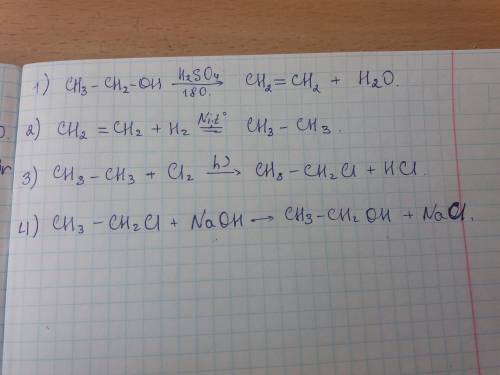 1) CH3-CH2-OH H2SO4 180. → CH2=CH2 + H2O.
2) CH2=CH2 + H2 Ni.t° ⇌ CH3-CH3.
3) CH3-CH3 + Cl2 hν → CH3-CH2Cl + HCl.
4) CH3-CH2Cl + NaOH → CH3-CH2OH + NaCl.